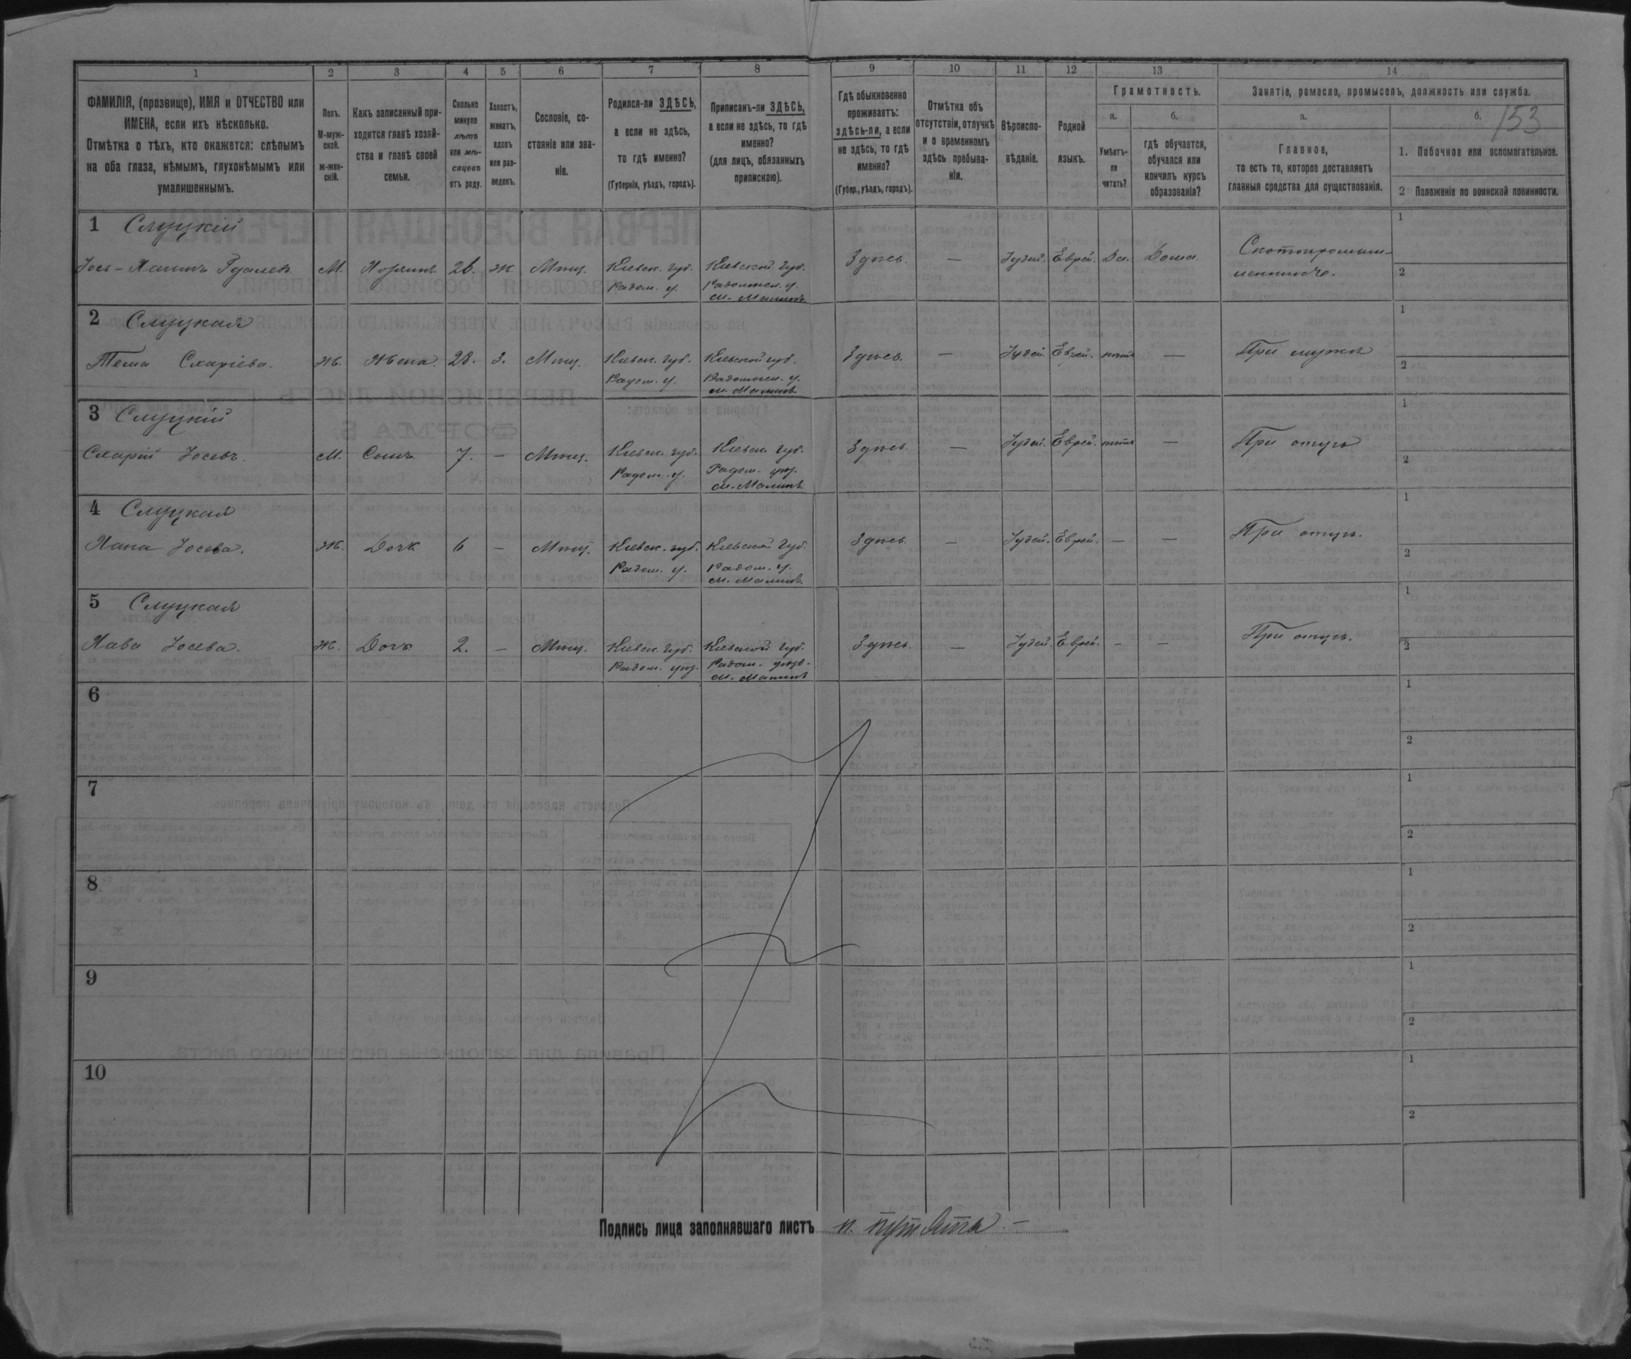 1 2 3 4 5 6 7 8 9 10 11 12 13 14
ФАМИЛІЯ, (прозвище), ИМЯ и ОТЧЕСТВО или ИМЕНА, если ихъ нѣсколько.
Отмѣтка о тѣхъ, кто окажется: слѣпымъ на оба глаза, нѣмымъ, глухонѣмымъ или умалишеннымъ.
Полъ.
М-мужской.
ж-женскій.
Какъ записанный приходится главѣ хозяйства и главѣ своей семьи.
Сколько минуло лѣтъ или мѣсяцевъ отъ роду.
Холостъ, женатъ, вдовъ или разведенъ.
Сословіе, состояніе или званіе.
Родился-ли ЗДѢСЬ, а если не здѣсь, то гдѣ именно?
(Губернія, уѣздъ, городъ).
Приписанъ-ли ЗДѢСЬ, а если не здѣсь, то гдѣ именно?
(для лицъ, обязанныхъ припискою).
Гдѣ обыкновенно проживаетъ: здѣсь-ли, а если не здѣсь, то гдѣ именно?
(Губер., уѣздъ, городъ).
Отмѣтка объ отсутствіи, отлучкѣ и о временномъ здѣсь пребываніи.
Вѣроисповѣданіе.
Родной языкъ.
Грамотность.
а.
Умѣетъ-ли читать?
б.
гдѣ обучается, обучался или кончилъ курсъ образованія?
Занятіе, ремесло, промыселъ, должность или служба.
а.
Главное,
то есть то, которое доставляетъ главныя средства для существованія.
б.
153
1. Побочное или вспомогательное.
2 Положеніе по воинской повинности.
1 Слуцкій
М. 26. ж. Мѣщ. Кіевск. губ. Радом. у. Кіевской губ. Радомысл. у. м. Малинъ Здѣсь — Іудей. Еврей. Да. Дома
1
2
2 Слуцкая
ж. Жена. 28. з. Мѣщ. Кіевск. губ. Радом. у. Кіевской губ. Радомысл. у. м. Малинъ Здѣсь — Іудей. Еврей. нѣтъ — При мужѣ
1
2
3 Слуцкій
М. Сынъ 7. — Мѣщ. Кіевск. губ. Радом. у. Кіевск. губ. Радом. уѣз. м. Малинъ Здѣсь — Іудей. Еврей. нѣтъ — При отцѣ
1
2
4 Слуцкая
Хана Іосева. ж. Дочь 6 — Мѣщ. Кіевск. губ. Радом. у. Кіевской губ. Радом. у. м. Малинъ Здѣсь — Іудей. Еврей. — — При отцѣ.
1
2
5 Слуцкая
Хава Іосева. ж. Дочь 2. — Мѣщ. Кіевск. губ. Радом. уѣз. Кіевской губ. Радом. уѣзд. м. Малинъ Здѣсь — Іудей. Еврей. — — При отцѣ.
1
2
6
1
2
7
1
2
8
1
2
9
1
2
10
1
2
Подпись лица заполнявшаго листъ